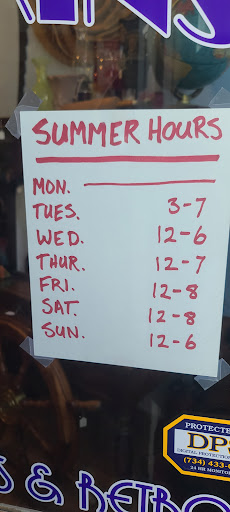 SUMMER HOURS
MON.
TUES. 3-7
WED. 12-6
THUR. 12-7
FRI. 12-8
SAT. 12-8
SUN. 12-6
DPS
(734) 433-
24 HR MONITO
& RETRO